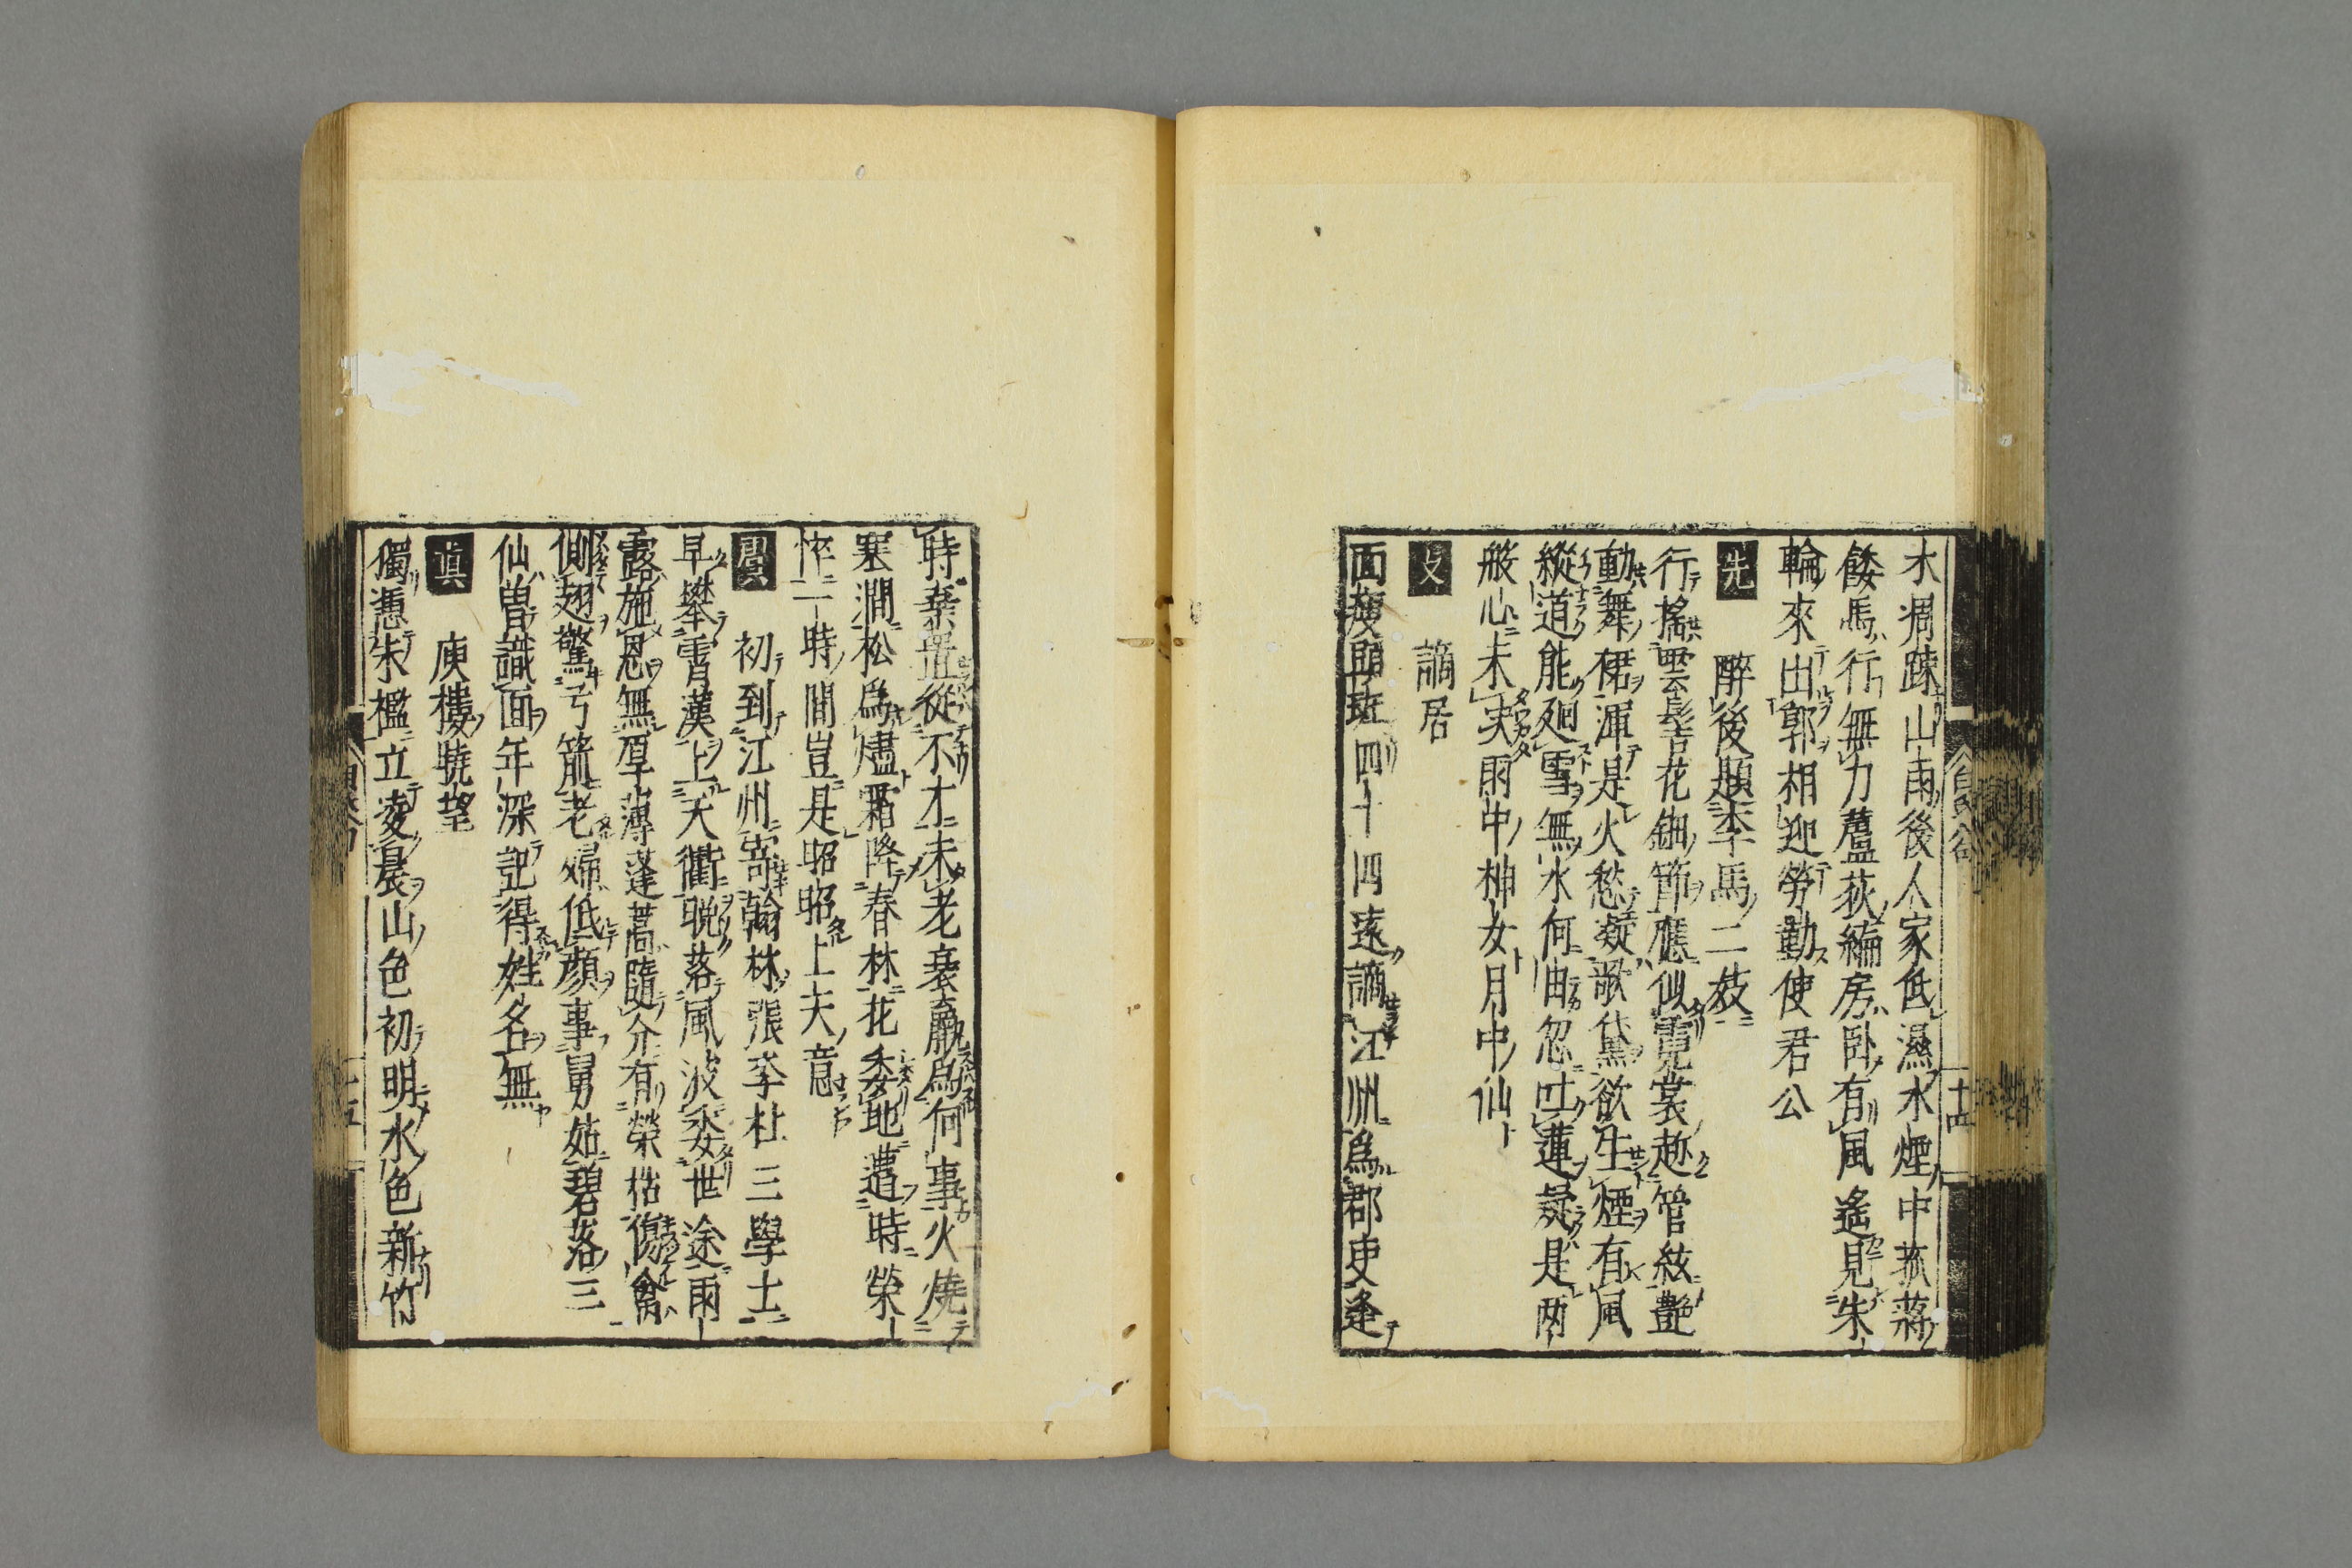 木凋踈山雨後人家低濕水煙中菰蔣
餧馬行無力蘆荻編房卧有風遙見朱
輪來出郭相迎勞動使君公
先 醉後題李馬二妓
行搖雲髻花鈿節應似霓裳趂管絃艶
動舞裙渾是火愁凝歌黛欲生煙有風
縱道能廻雪無水何由忽吐蓮疑是兩
般心未決雨中神女月中仙
支 謫居
面瘦頭斑四十四遠謫江州爲郡吏逢
時棄置從不才未老衰羸爲何事火燒
寒澗松爲燼霜降春林花委地遭時榮
悴一時間豈是昭昭上天意
虞 初到江州寄翰林張李杜三學士
早攀霄漢上天衢晩落風波委世途雨
露施恩無厚薄蓬蒿隨分有榮枯傷禽
側翅驚弓箭老婦低顔事舅姑碧落三
仙曽識面年深記得姓名無
真 庾樓暁望
獨憑朱檻立凌晨山色初明水色新竹